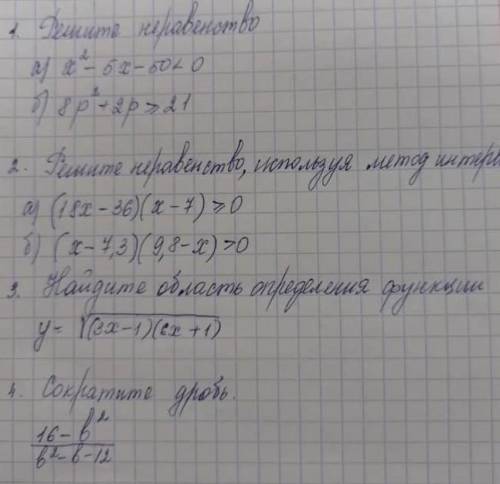 1. Решите неравенство
а) x² - 5x - 50 < 0
б) 8p² + 2p ≥ 21
2. Решите неравенство, используя метод интерв
а) (18x - 36)(x - 7) ≥ 0
б) (x - 7,3)(9,8 - x) > 0
3. Найдите область определения функции
y = √(3x - 1)(6x + 1)
4. Сократите дробь.
16 - b²
b² - b - 12